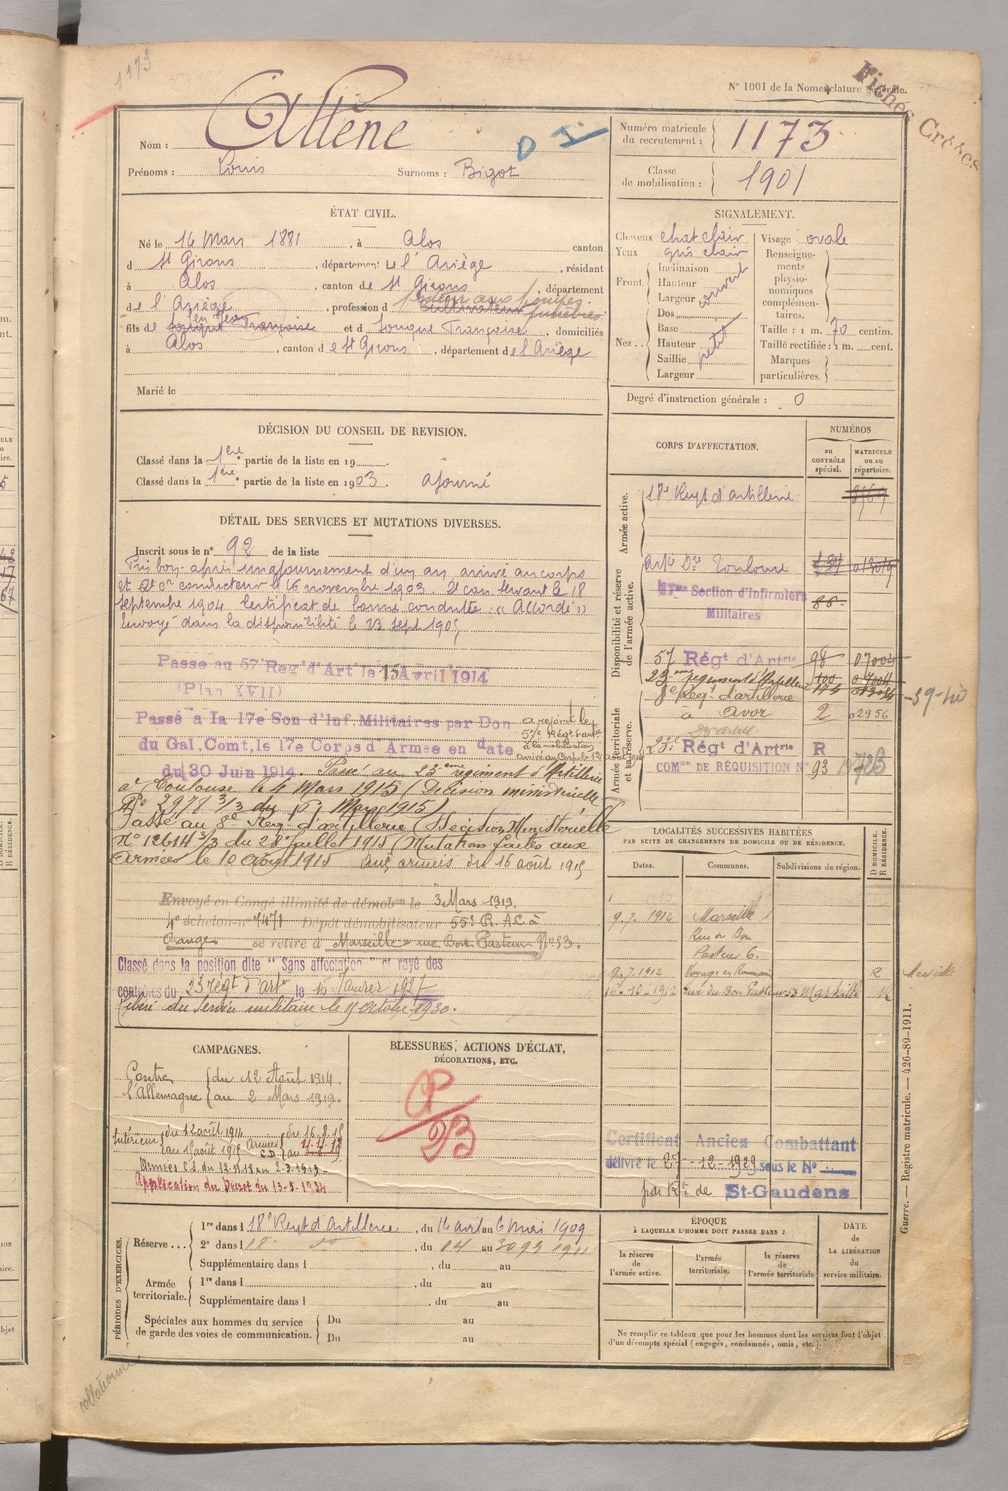 1173
N° 1001 de la Nomenclature générale.
Fiches Créées
Nom : Attené
D
Prénoms : Louis Surnoms : Bigot
Numéro matricule du recrutement : 1173
Classe de mobilisation : 1901
ÉTAT CIVIL.
Né le 14 Mars 1881, à Alos canton
d St Girons, département de l'Ariège, résidant
à Alos, canton de St Girons, département
de l'Ariège, profession d porteur aux pompes funèbres Cultivateur
fils de feu Jean et de Souque Françoise, domiciliés
à Alos, canton de St Girons, département de l'Ariège
Marié le
SIGNALEMENT.
Cheveux chat clair
Yeux gris clair
Front : Inclinaison
Hauteur
Largeur
couvert
Nez : Dos
Base
Hauteur
Saillie
Largeur
petit
Visage ovale
Renseignements physionomiques complémentaires.
Taille : 1 m. 70 centim.
Taille rectifiée : 1 m. cent.
Marques particulières.
Degré d'instruction générale : 0
DÉCISION DU CONSEIL DE REVISION.
Classé dans la 1ère partie de la liste en 19
Classé dans la 1ère partie de la liste en 1903 ajourné
DÉTAIL DES SERVICES ET MUTATIONS DIVERSES.
Inscrit sous le n° 92 de la liste
Pris bon après un ajournement d'un an arrivé au corps
et 2e cr conducteur le 16 novembre 1903
septembre 1904. Certificat de bonne conduite "Accordé"
Envoyé dans la disponibilité le 23 sept 1905
Passé au 57e Régt d'Art le 15 Avril 1914
(Plan XVII)
Passé à la 17e Son d'Inf. Militaires par Don
du Gal. Comt. le 17e Corps d'Armée en date
du 30 Juin 1914. Passé au 23ème régiment d'Artillerie
a rejoint le
57e Régt d'art
à la mobilisation
à Toulouse le 4 Mars 1915 (Décision ministérielle
N° 2978 3/3 du 1er Mars 1915)
Passé au 8e Reg. d'artillerie (Décision Ministérielle
N° 12614 3/3 du 28 juillet 1915 (Mutations faites aux
Armées le 10 Août 1915 Aux armées du 16 août 1915
Envoyé en Congé illimité de démobon le 3 Mars 1919.
4e échelon n° 7471 Dépôt démobilisateur 55e R.A.C. à
Orange se retire à Marseille rue Bon Pasteur N° 53.
Classé dans la position dite "Sans affectation" et rayé des
contrôles du 23 régt d'art le 15 Janvier 1927
Libéré du Service militaire le 11 octobre 1930.
CORPS D'AFFECTATION.
NUMÉROS
au contrôle spécial.
matricule ou au répertoire.
Armée active.
18e Regt d'artillerie
Disponibilité et réserve de l'armée active.
Artie Don Toulouse
17me Section d'Infirmiers Militaires 86
57 Régt d'Artrie 98 07004
23ème régiment d'Artillerie
Armée territoriale et sa réserve.
8e Reg. d'artillerie
à Avor 2 02956
39-40
23e Régt d'Artrie R
COMon DE RÉQUISITION N° 93
LOCALITÉS SUCCESSIVES HABITÉES
PAR SUITE DE CHANGEMENTS DE DOMICILE OU DE RÉSIDENCE.
Dates. Communes. Subdivisions de région. D DOMICILE. R RÉSIDENCE.
9.7.1912 Marseille
Rue du Bon
Pasteur 6.
9.7.1912 R Marseille
16-12-1912 rue du Bon Pasteur 53 Marseille R
CAMPAGNES.
Contre l'Allemagne du 12 Août 1914 au 2 Mars 1919.
Intérieur du 12 août 1914 au 15 août 1915
Armées C.D. du 16.8.15
Application du Décret du 13-5-1934
BLESSURES, ACTIONS D'ÉCLAT, DÉCORATIONS, ETC.
Certificat Ancien Combattant
délivré le 27-12-1929 sous le N°
par Rt de St-Gaudens
PÉRIODES D'EXERCICES.
Réserve 1re dans l 18e Regt d'Artillerie, du 14 avril au 6 mai 1909
2e dans l 18e do du 14 au 30 1911
Supplémentaire dans l , du au
Armée territoriale. 1re dans l , du au
Supplémentaire dans l , du au
Spéciales aux hommes du service de garde des voies de communication. Du au
Du au
ÉPOQUE
À LAQUELLE L'HOMME DOIT PASSER DANS :
la réserve de l'armée active.
l'armée territoriale.
la réserve de l'armée territoriale
DATE de LA LIBÉRATION du service militaire.
Ne remplir ce tableau que pour les hommes dont les services font l'objet d'un décompte spécial (engagés, condamnés, omis, etc.).
Guerre. — Registre matricule. — 426-89-1911.